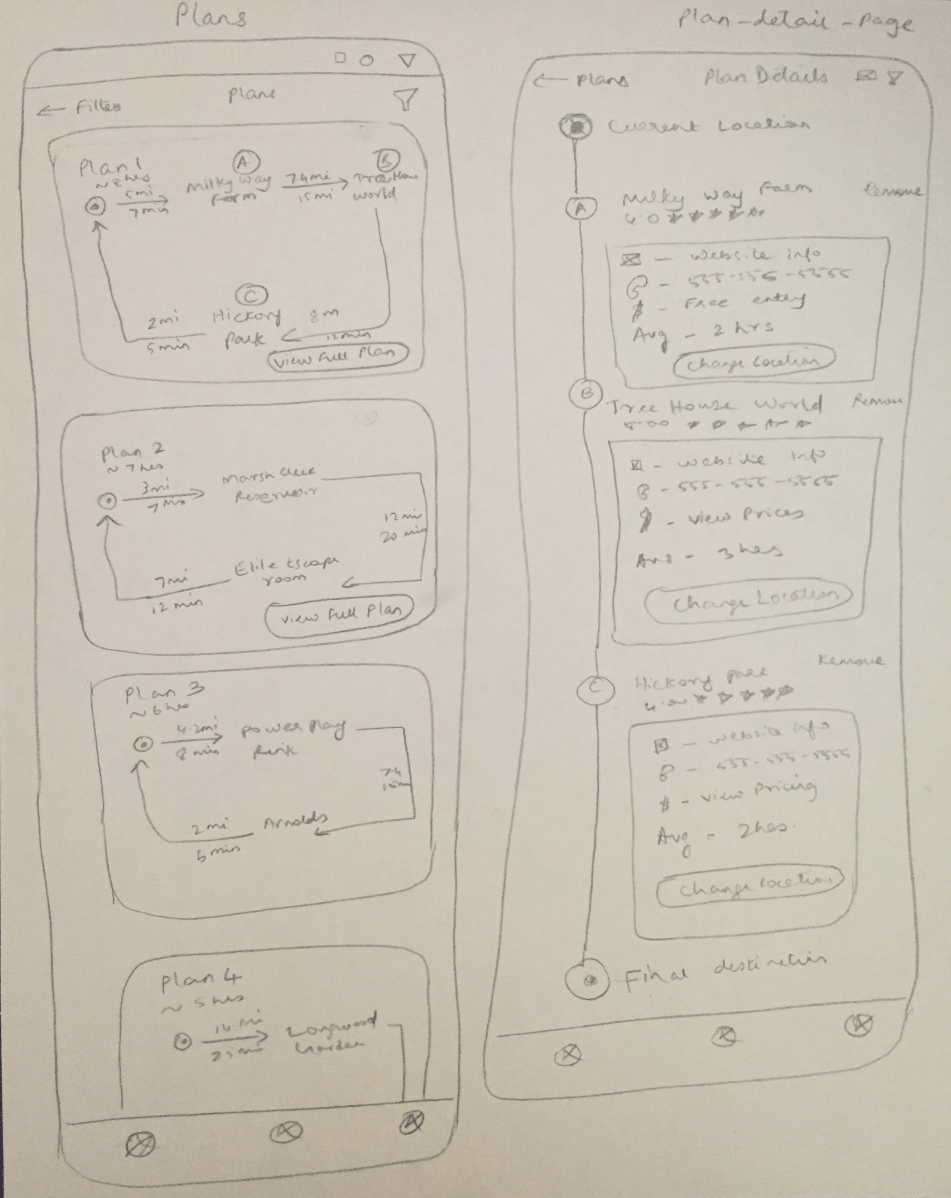 Plans
Plan-detail-Page
← Filter
Plans
Plan 1
~ 8 hrs
5mi
7min
A
Milky Way
Farm
7.4mi
15mi
B
Tree House
World
C
Hickory
Park
8m
12min
2mi
5min
View Full Plan
Plan 2
~ 7 hrs
3mi
7min
Marsh Creek
Reservoir
12mi
20 min
Elite Escape
room
7mi
12 min
View Full Plan
Plan 3
~ 6 hrs
4.2mi
8 min
Power Play
Rink
Arnolds
2mi
5min
Plan 4
~ 5 hrs
14 mi
Longwood
Garden
← Plans
Plan Details
Current Location
A
Milky Way Farm
Remove
4.0
— Website info
Free entry
Avg — 2 hrs
Change Location
B
Tree House World
Remove
5.00
— Website Info
- 555-555-5555
- View Prices
Avg - 3hrs
Change Location
C
Hickory park
Remove
- Website info
- 555-555-5555
$ - View Pricing
Avg - 2hrs.
Change Location
Final destination